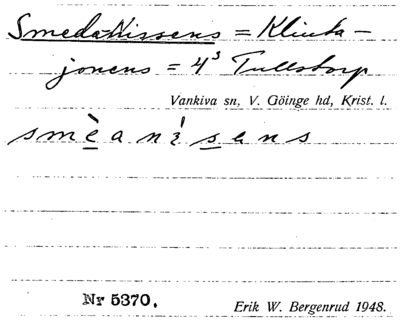 Smeda-Nissens = Klinta-
jonens = 4³ Tullstorp
Vankiva sn, V. Göinge hd, Krist. l.
smèanísens
Nr 5370.
Erik W. Bergenrud 1948.